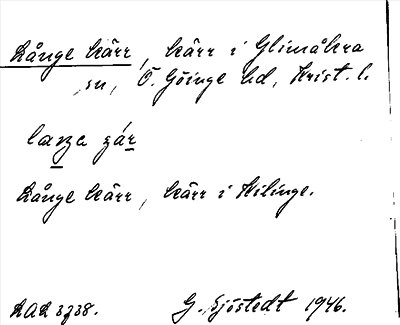 Långe kärr, kärr i Glimåkra
sn, Ö. Göinge hd, Krist. l.
Långe kärr, kärr i Hilinge.
G. Sjöstedt 1946.